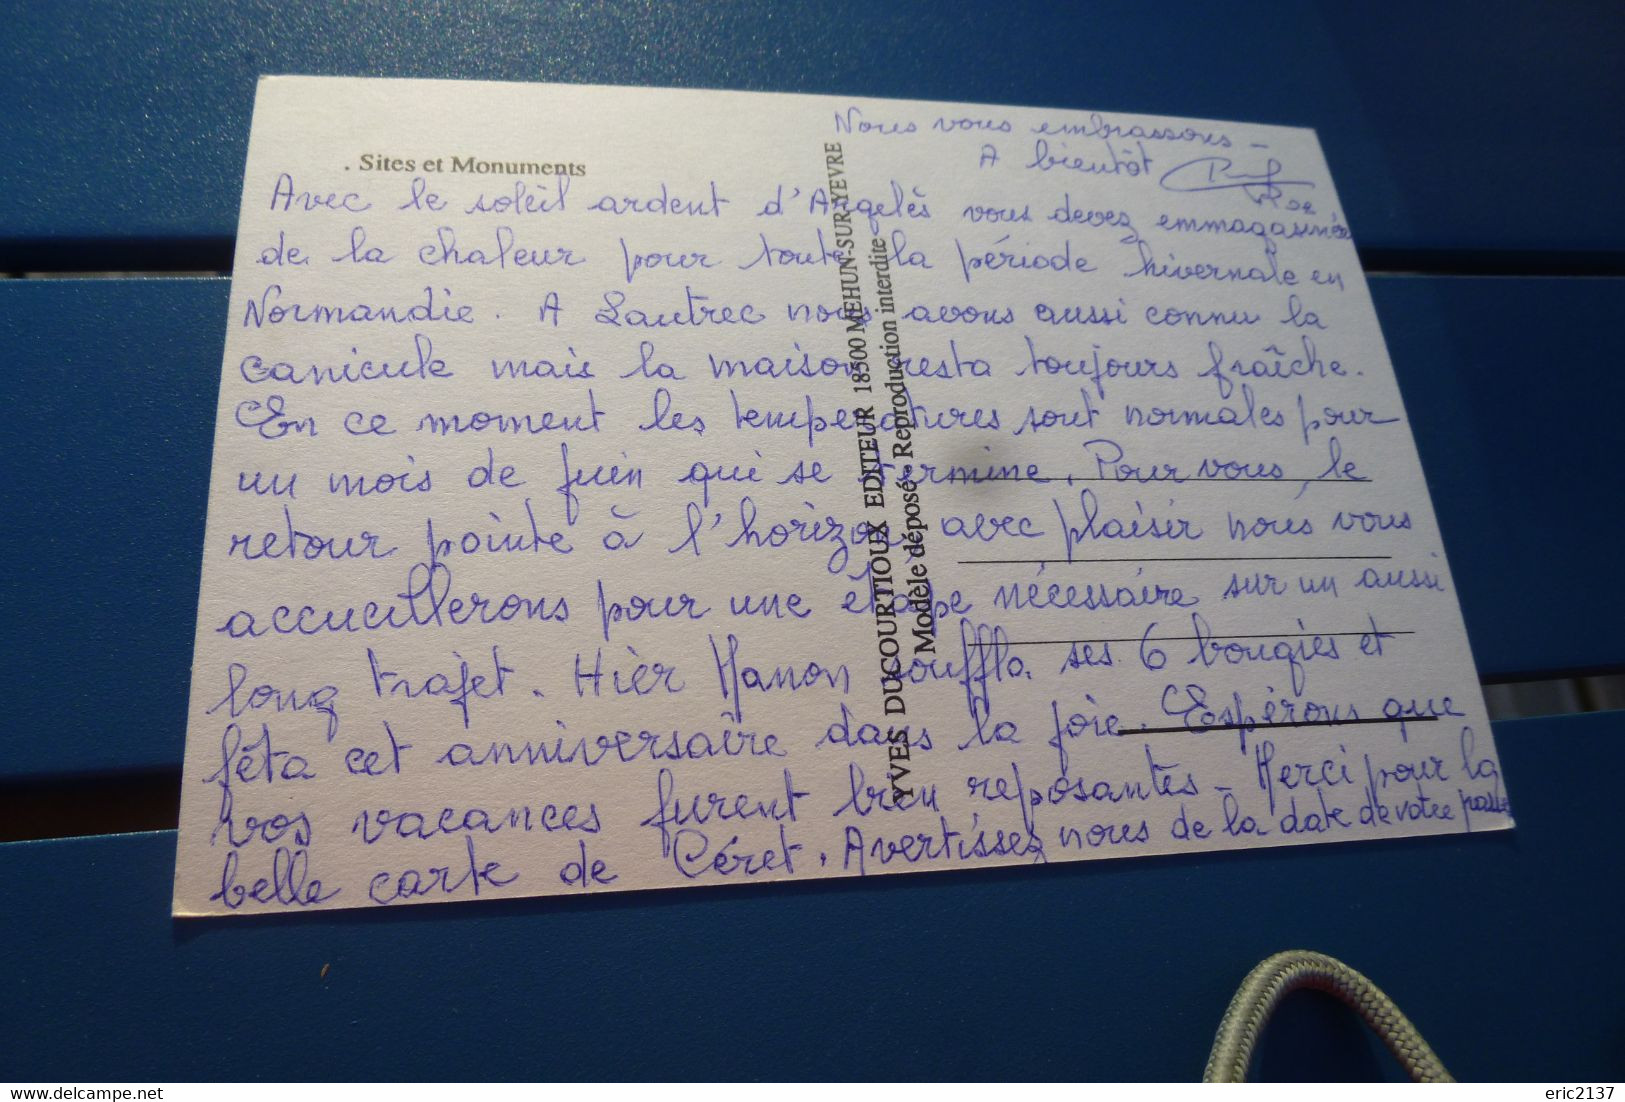 Nous vous embrassons -
A bientôt
. Sites et Monuments
Avec le soleil ardent d'Argelès vous devez emmagasiner
de la chaleur pour toute la période hivernale en
Normandie. A Lautrec nous avons aussi connu la
canicule mais la maison resta toujours fraîche.
En ce moment les températures sont normales pour
un mois de juin qui se termine. Pour vous, le
retour pointe à l'horizon, avec plaisir nous vous
accueillerons pour une étape nécessaire sur un aussi
long trajet. Hier Manon souffla ses 6 bougies et
fêta cet anniversaire dans la joie. Espérons que
vos vacances furent bien reposantes - Merci pour la
belle carte de Céret. Avertissez nous de la date de votre passage
YVES DUCOURTIOUX EDITEUR 18500 MEHUN-SUR-YEVRE
Modèle déposé - Reproduction interdite
delcampe.net
eric2137